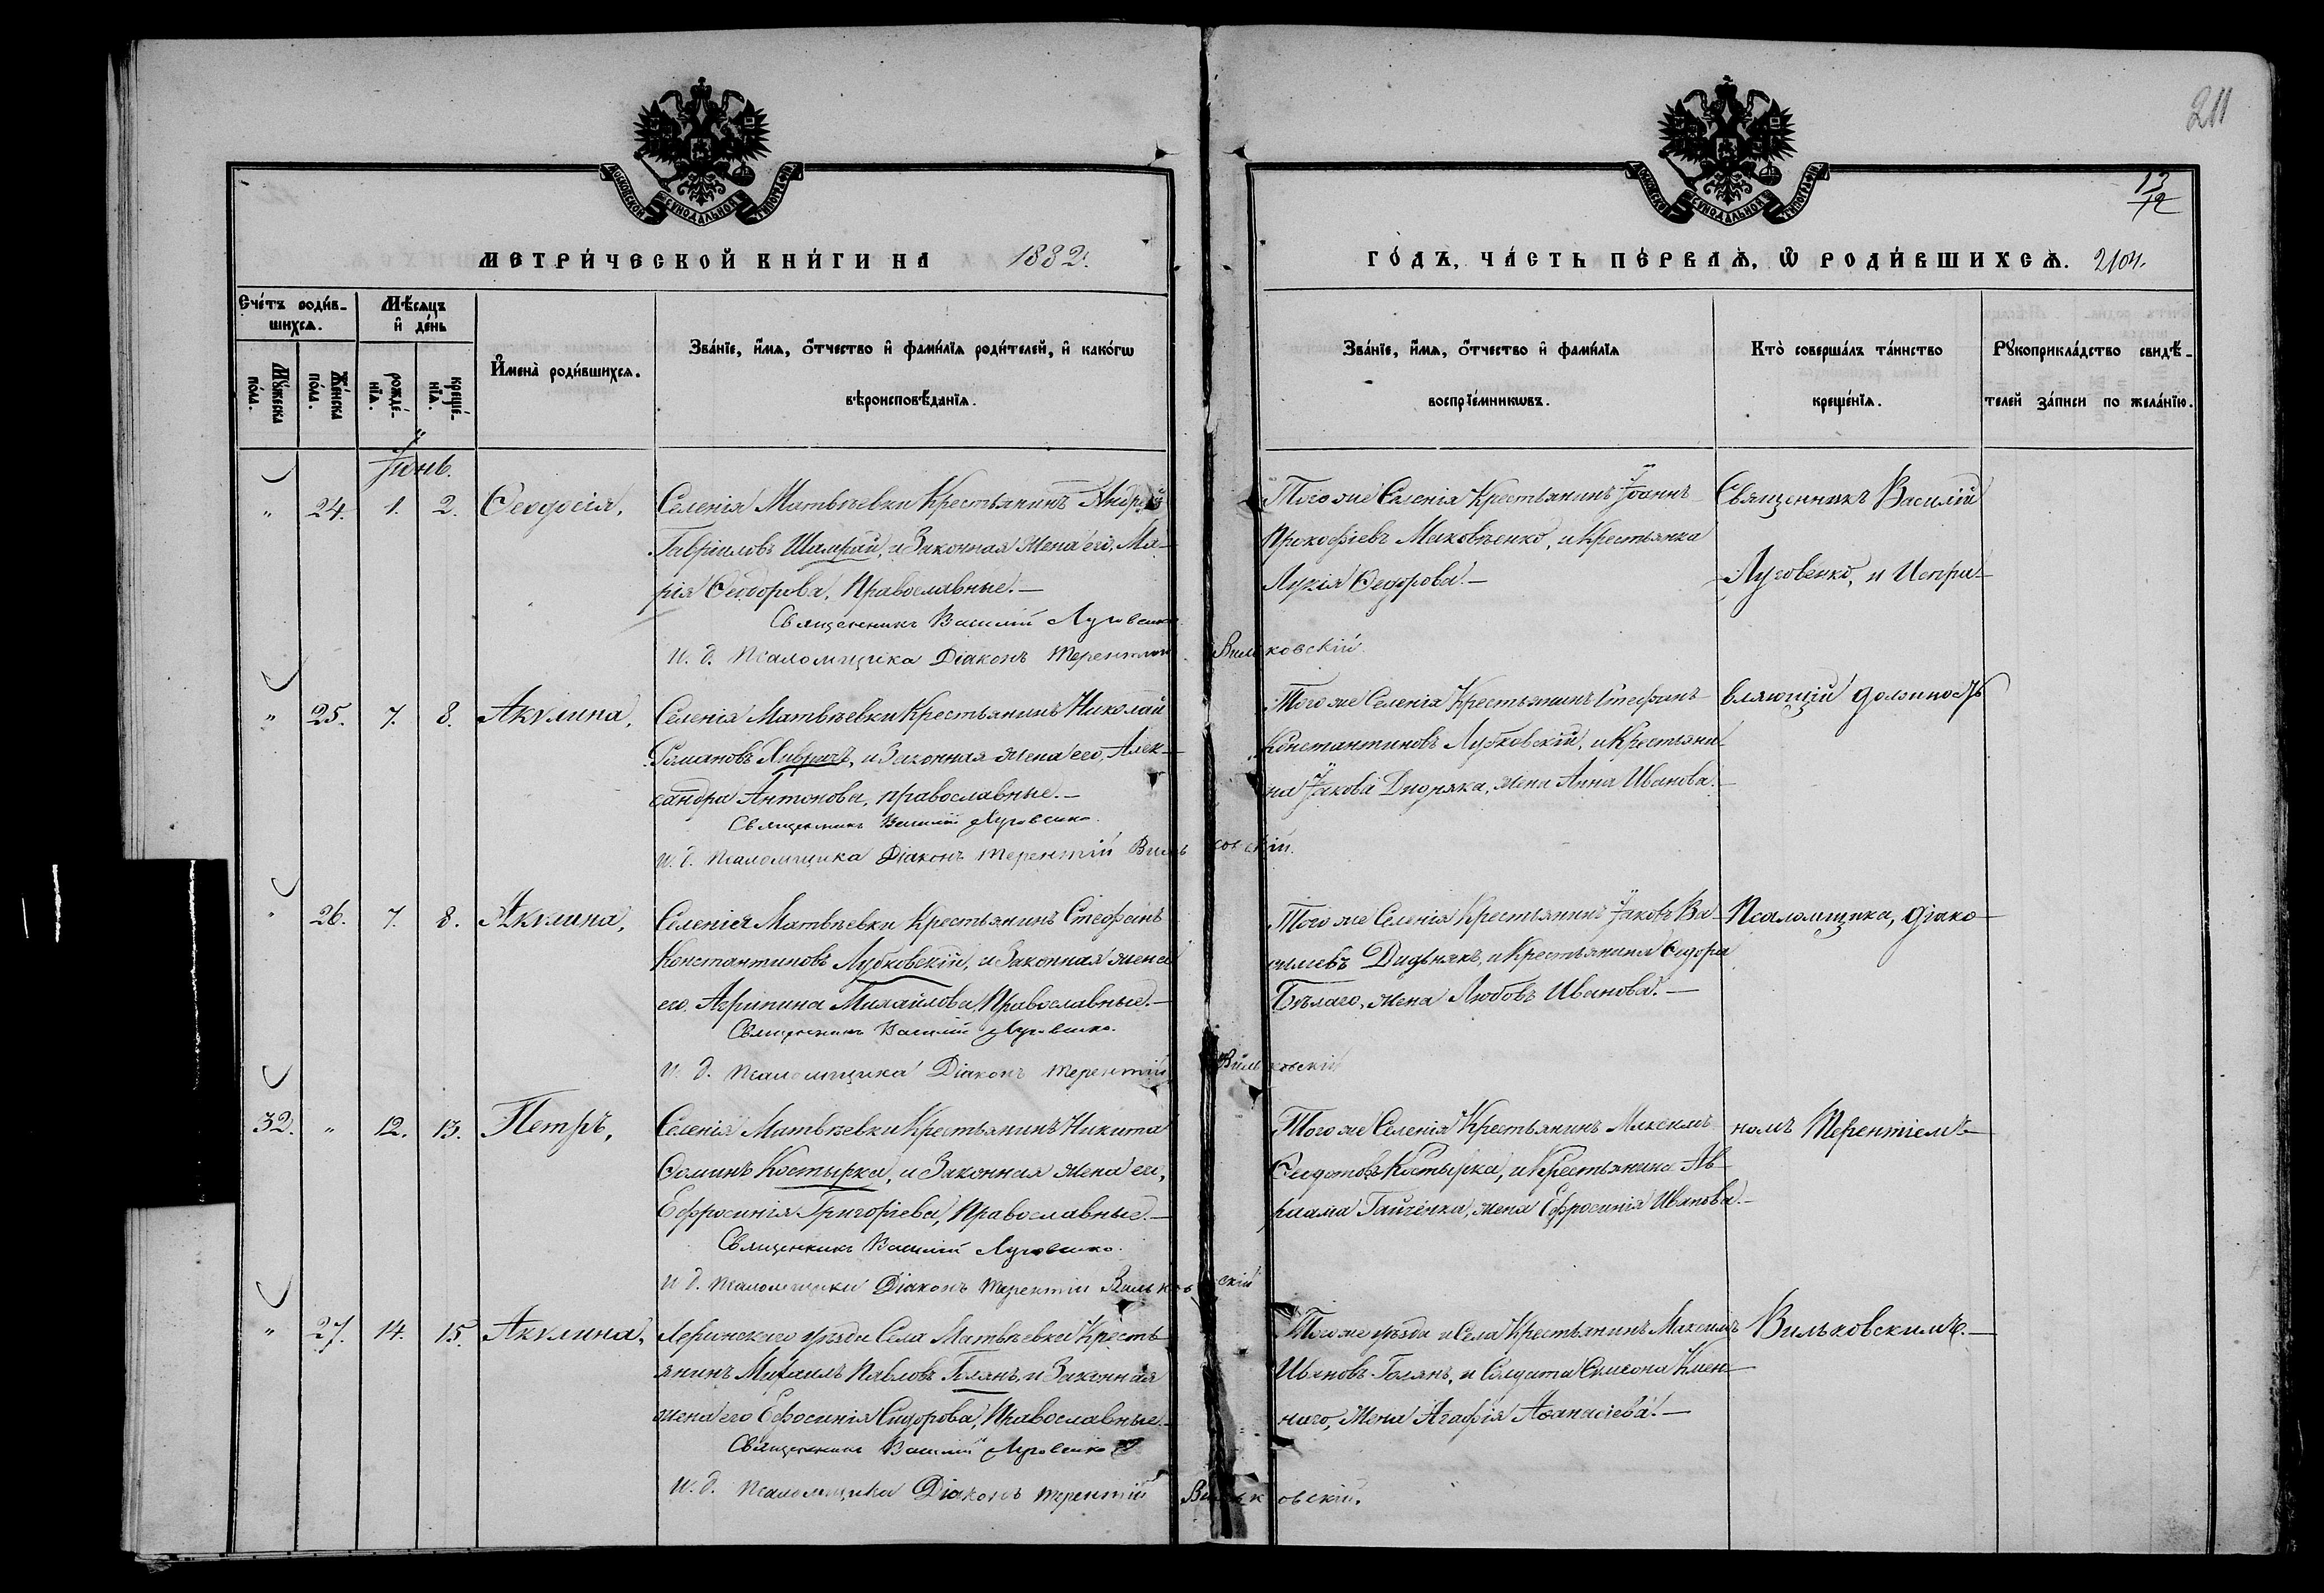 211
13/12
МОСКОВСКОЙ СУНОДАЛЬНОЙ ТИПОГРАФІИ
МОСКОВСКОЙ СУНОДАЛЬНОЙ ТИПОГРАФІИ
МЕТРИ́ЧЕСКОЙ КНИ́ГИ НА 1882.
ГО́ДЪ, ЧА́СТЬ ПЕ́РВАѦ, Ѿ РОДИ́ВШИХСѦ. 210ч.
Сче́тъ роди́в-
шихсѧ.
Мѣ́сѧцъ
и҆ де́нь
Му́жеска по́ла.
Же́нска по́ла.
рожде́-
нїѧ.
креще́-
нїѧ.
И҆мена̀ роди́вшихсѧ.
Зва́нїе, и҆́мѧ, о҆́тчество и҆ фами́лїѧ роди́телей, и҆ како́гѡ
вѣроисповѣ́данїѧ.
Зва́нїе, и҆́мѧ, о҆́тчество и҆ фами́лїѧ
воспрїе́мникѡвъ.
Кто̀ соверша́лъ та́инство
креще́нїѧ.
Рꙋкоприкла́дство свидѣ́-
телей за́писи по жела́нїю.
Іюнь.
" 24. 1. 2. Ѳеодосія,
Селенія Матвѣевки Крестьянинъ Андрей
Гавріиловъ Шамрай, и Законная жена его, Ма-
рія Ѳеодорова, Православные.—
Священникъ Василій Луговенко
И. д. Псаломщика Діаконъ Терентій Вильковскій
Того же Селенія Крестьянинъ Іоаннъ
Прокофіевъ Маковѣенко, и Крестьянка
Лукія Ѳедорова.—
Священникъ Василій
Луговенко, и Испра-
" 25. 7. 8. Акулина,
Селенія Матвѣевки Крестьянинъ Николай
Романовъ, и Законная жена его, Алек-
сандра Антонова, православные.—
Священникъ Василій Луговенко.
И. д. Псаломщика Діаконъ Терентій Вильковскій.
Того же Селенія Крестьянинъ Стефанъ
Константиновъ Лубковскій, и Крестьяни-
на Іакова Дидняка, жена Анна Иванова.—
вляющій должность
" 26. 7. 8. Акулина,
Селенія Матвѣевки Крестьянинъ Стефанъ
Константиновъ Лубковскій, и Законная жена
его Агрипина Михайлова, Православные.—
Священникъ Василій Луговенко.
И. д. Псаломщика Діаконъ Терентій Вильковскій
Того же Селенія Крестьянинъ Іаковъ Ва-
силіевъ Дидьнякъ, и Крестьянина Ѳедора
Бѣлаго, жена Любовь Иванова.—
Псаломщика, Діако-
32. " 12. 13. Петръ,
Селенія Матвѣевки Крестьянинъ Никита
Ѳоминъ Костырка, и Законная жена его,
Ефросинія Григоріева, Православные.—
Священникъ Василій Луговенко.
И. д. Псаломщика Діаконъ Терентій Вильковскій
Того же Селенія Крестьянинъ Максимъ
Ѳедотовъ Костырка, и Крестьянина Ав-
раама Гайченка, жена Ефросинія Иванова.—
номъ Терентіемъ
" 27. 14. 15. Акулина,
уѣзда Села Матвѣевки Кресть-
янинъ Михаилъ Павловъ Голянъ, и Законная
жена его Ефосинія Сидорова, Православные.—
Священникъ Василій Луговенко
И. д. Псаломщика Діаконъ Терентій Вильковскій.
Того же уѣзда и Села Крестьянинъ Максимъ
Ивановъ Голянъ, и Солдата Симеона Клен-
наго, жена Агафія Аѳанасіева.—
Вильковскимъ.—